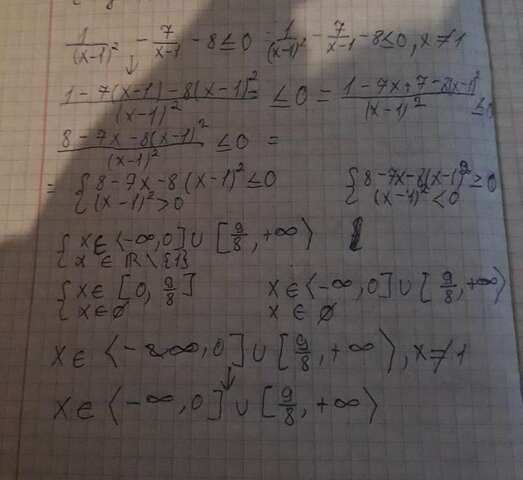 1/(x-1)² - 7/(x-1) - 8 ≤ 0 1/(x-1)² - 7/(x-1) - 8 ≤ 0, x ≠ 1
↓
(1 - 7(x-1) - 8(x-1)²)/(x-1)² ≤ 0 = (1 - 7x + 7 - 8(x-1)²)/(x-1)² ≤ 0
(8 - 7x - 8(x-1)²)/(x-1)² ≤ 0 =
= { 8 - 7x - 8(x-1)² ≤ 0 { 8 - 7x - 8(x-1)² ≥ 0
{ (x-1)² > 0 { (x-1)² < 0
{ x ∈ ⟨-∞, 0] ∪ [9/8, +∞⟩
{ x ∈ ℝ \ {1}
{ x ∈ [0, 9/8] x ∈ ⟨-∞, 0] ∪ [9/8, +∞⟩
{ x ∈ ∅ x ∈ ∅
x ∈ ⟨-∞, 0] ∪ [9/8, +∞⟩, x ≠ 1
↓
x ∈ ⟨-∞, 0] ∪ [9/8, +∞⟩